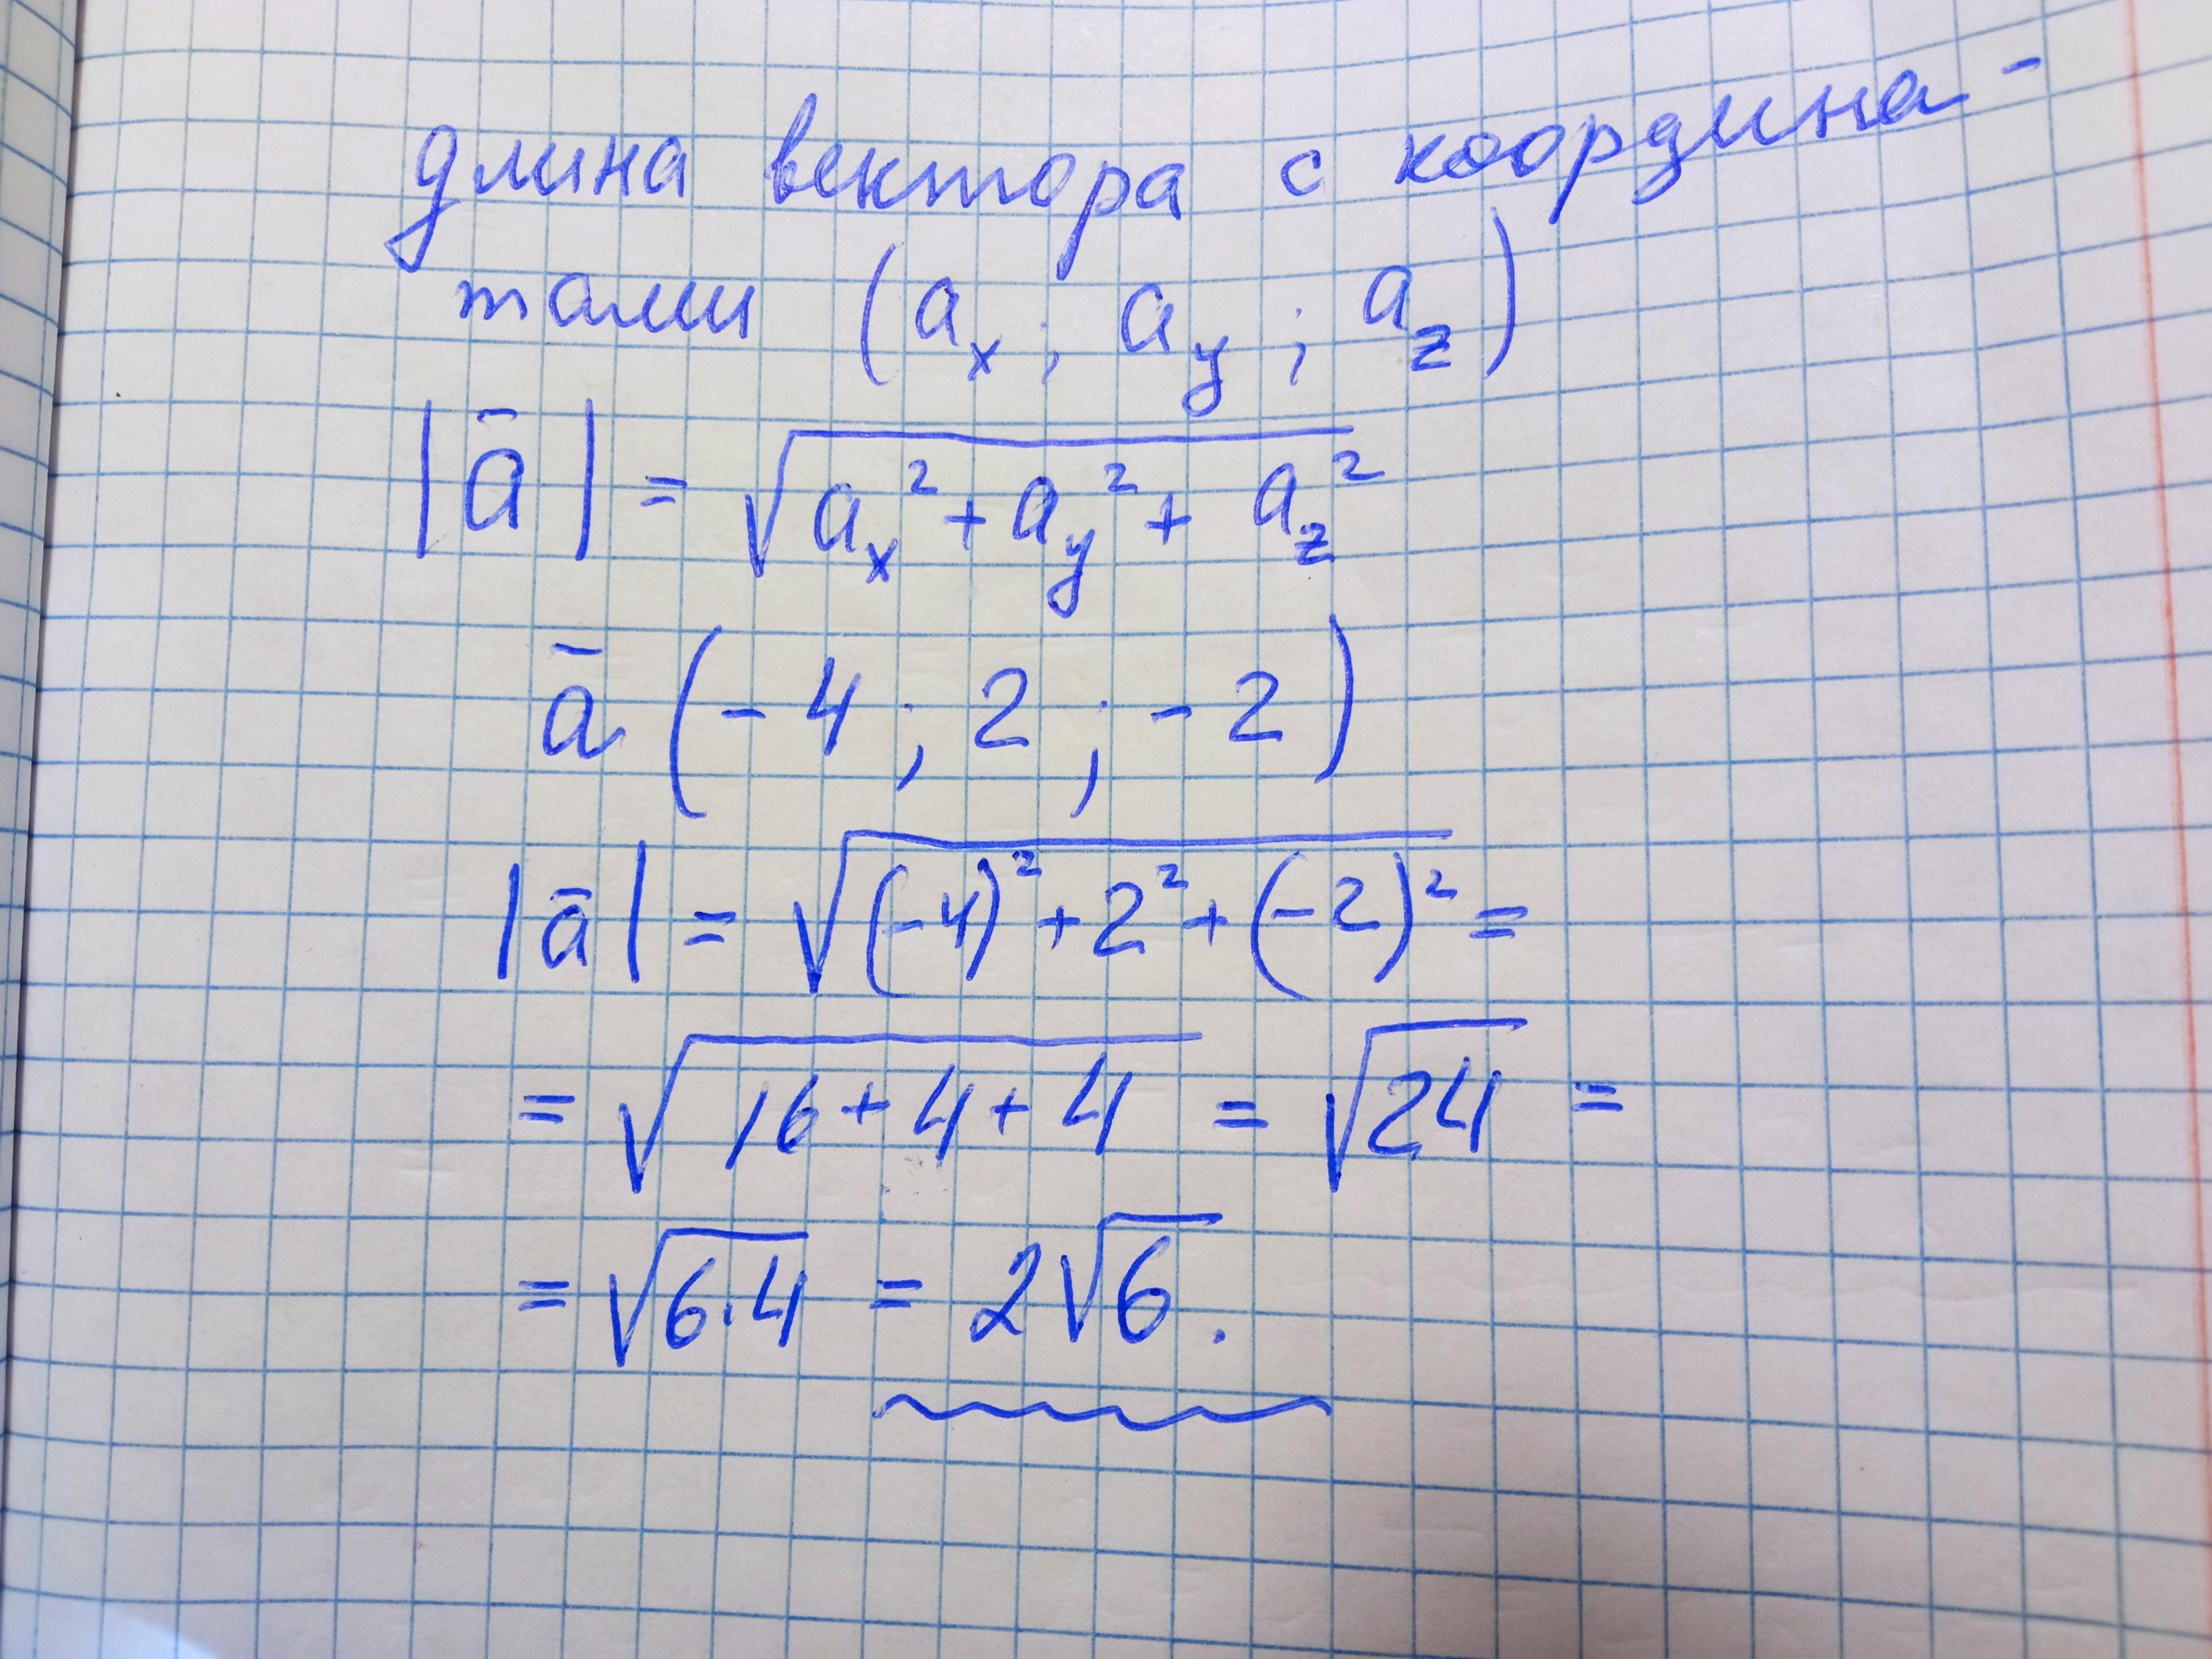 длина вектора с координа-
тами (aₓ; a_y; a_z)
|ā| = √(aₓ² + a_y² + a_z²)
ā (-4; 2; -2)
|ā| = √((-4)² + 2² + (-2)²) =
= √(16 + 4 + 4) = √24 =
= √(6·4) = 2√6.